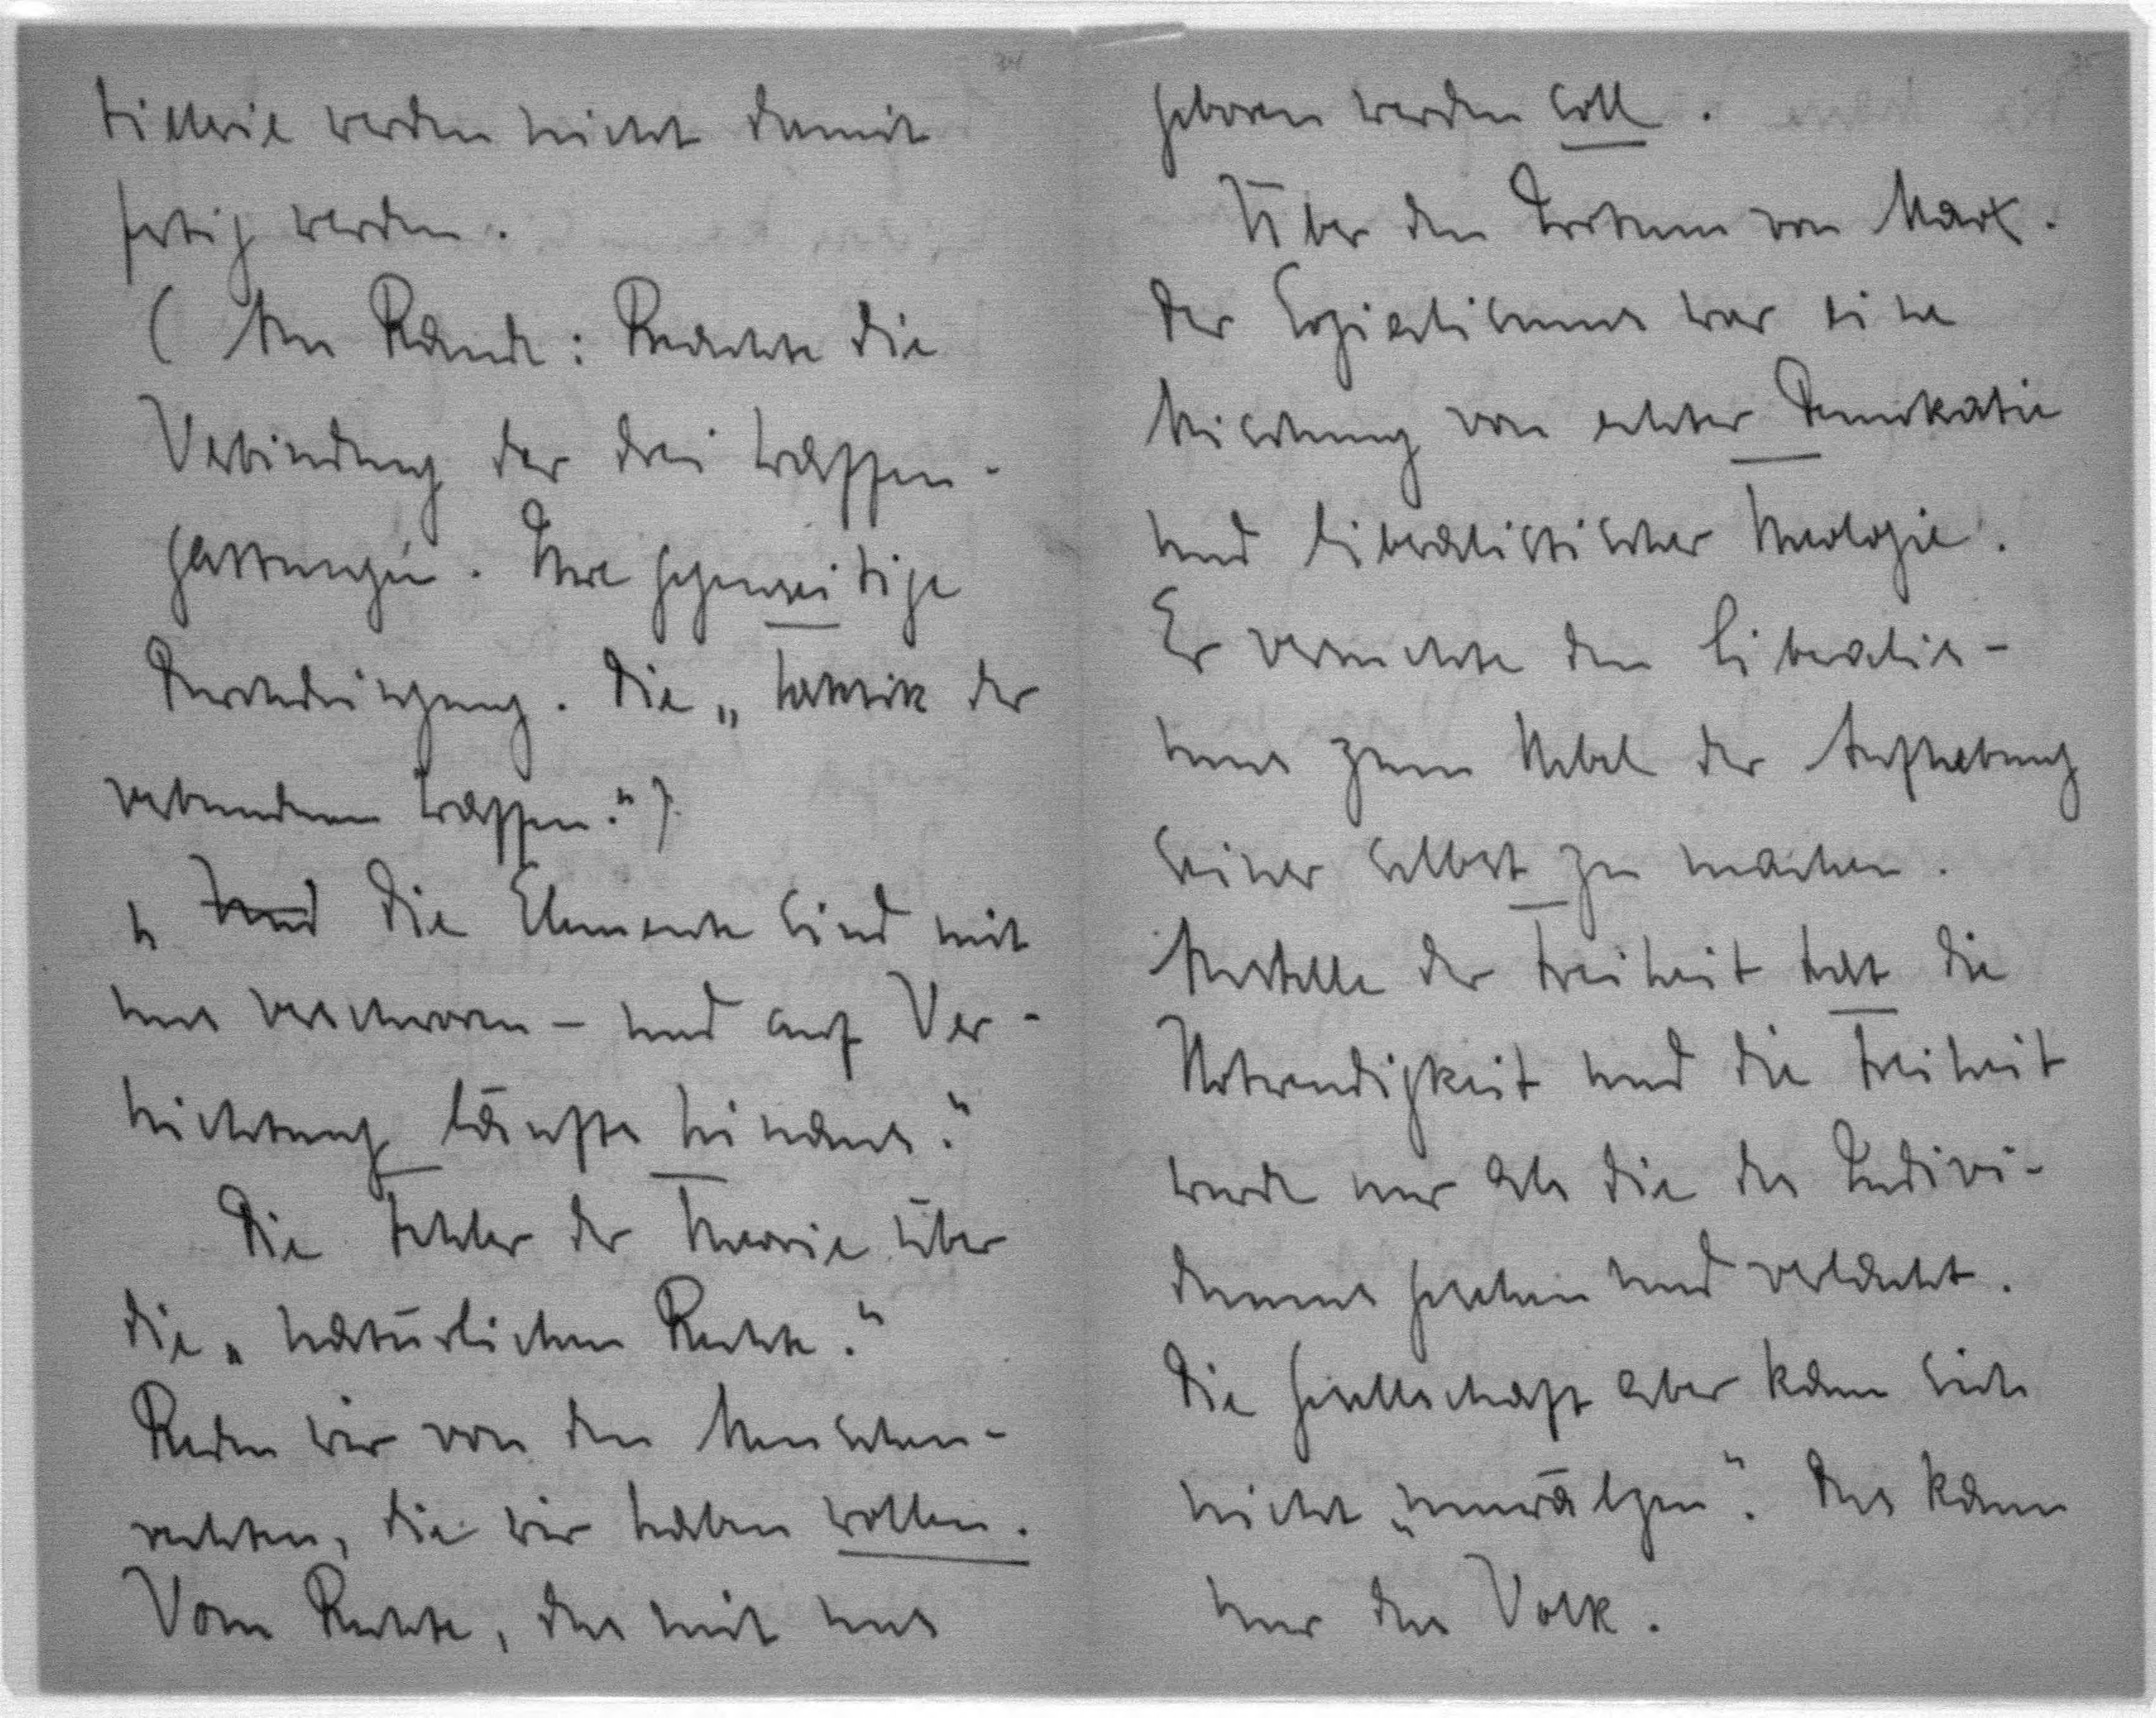 34
tillerie werden nicht damit
fertig werden.
( Am Rande: Beachte die
Verbindung der drei Waffen-
gattungen. Ihre gegenseitige
Durchdringung. Die „Taktik der
verbundenen Waffen.“ )
„ Und die Elemente sind mit
uns verschworen – und auf Ver-
nichtung läufts hinaus.“
Die Fehler der Theorie über
die „natürlichen Rechte.“
Reden wir von den Menschen-
rechten, die wir haben wollen.
Vom Rechte, das mit uns
35
geboren werden soll.
Über den Irrtum von Marx.
Der Sozialismus war eine
Mischung von echter Demokratie
und liberalistischer Theologie.
Er versuchte den Liberalis-
mus zum Hebel der Aufhebung
seiner selbst zu machen.
Anstelle der Freiheit trat die
Notwendigkeit und die Freiheit
wurde nur als die des Indivi-
duums gesehen und verlacht.
Die Gesellschaft aber kann sich
nicht „umwälzen“. Das kann
nur das Volk.